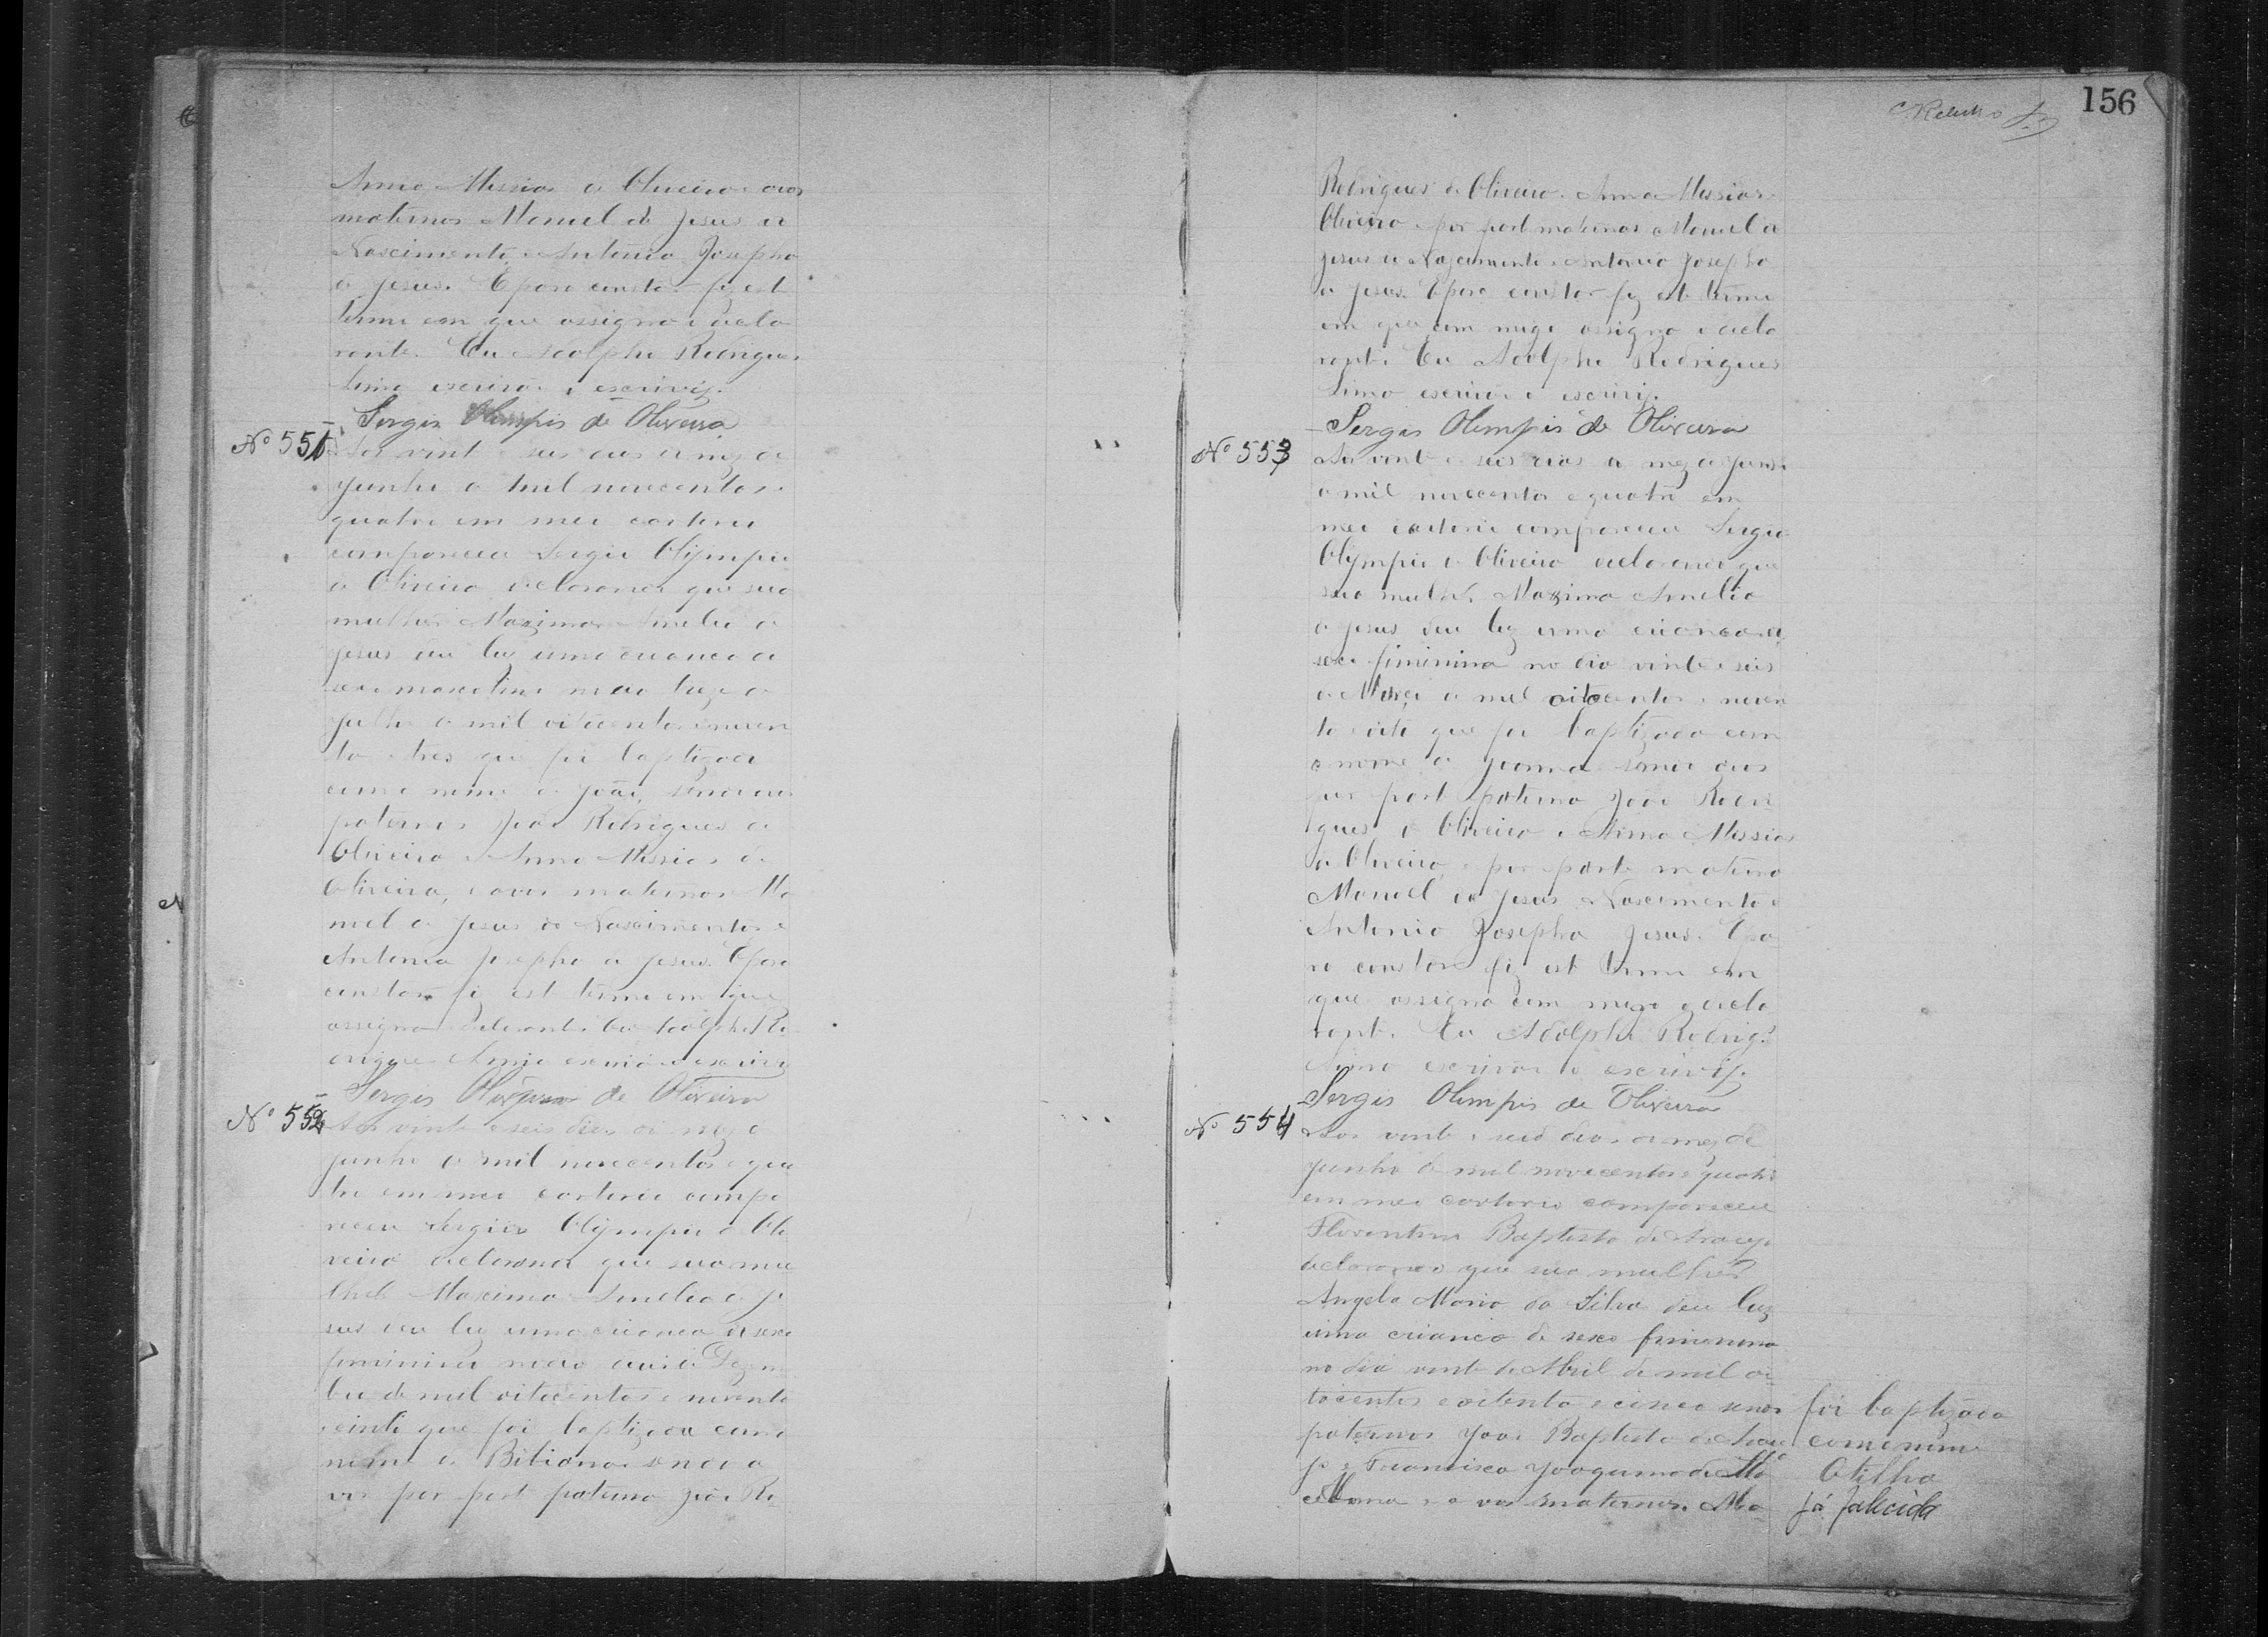 Anna Messias de Oliveira avos
maternos Manuel de Jesus do
Nascimento e Antonia Josepha
de Jesus. E para constar fiz este
termo em que assigna o decla
rante. Eu Adolpho Rodrigues
Lima escrivão o escrivij.
Sergio Olimpio de Oliveira
Nº 551
Aos vinte e seis dias do mez de
Junho de mil novecentos e
quatro em meu cartorio
compareceu Sergio Olÿmpio
de Oliveira declarando que sua
mulher Mazima Amelia de
Jesus deu luz uma creanca do
sexo masculino no dia treze de
Julho de mil oitocentos e noven
ta e tres que foi baptizado
com o nome de João, sendo avos
paternos João Rodrigues de
Oliveira e Anna Messias de
Oliveira, e avos maternos Ma
noel de Jesus do Nascimento e
Antonia Josepha de Jesus. E para
constar fiz este termo em que
assigna o declarante. Eu Adolpho Ro
drigues Lima escrivão o escrivij
Sergio de Oliveira
Nº 552
Aos vinte e seis dias do mez de
Junho de mil novecentos e qua
tro em meu cartorio compa
receu Sergio Olÿmpio de Oli
veira declarando que sua mu
lher Maxima Amelia de Je
sus deu luz uma creanca do sexo
feminino no dia de Dezem
bro de mil oitocentos e noventa
que foi baptizada com o
nome de Bibiana sendo a
vos por parte paterna João Ro-
156
Rodrigues de Oliveira e Anna Messias
Oliveira e por parte maternos Manuel de
Jesus do Nascimento e Antonia Josepha
de Jesus. E para constar fiz este termo
em que com migo assigna o decla
rante. Eu Adolpho Rodrigues
Lima escrivão o escrivij.
Sergio Olimpio de Oliveira
Nº 553
Aos vinte e seis dias do mez de Junho
de mil novecentos e quatro em
meu cartorio compareceu Sergio
Olÿmpio de Oliveira declarando que
sua mulher Mazima Amelia
de Jesus deu luz uma creanca do
sexo fiminino no dia vinte e seis
de Março de mil oitocentos e noven
ta e oito que foi baptizada com
o nome de Joanna sendo avos
por parte paterna João Rodri
gues de Oliveira e Anna Messias
de Oliveira, e por parte materna
Manoel de Jesus Nascimento e
Antonia Josepha Jesus. E pa
ra constar fiz este termo em
que assigna com migo o decla
rante. Eu Adolpho Rodrigs
Lima escrivão o escrivij.
Sergio Olimpio de Oliveira
Nº 554
Aos vinte e seis dias do mez de
Junho de mil novecentos e quatro
em meu cartorio compareceu
Florentino Baptista de Araujo
declarando que sua mulher
Angela Maria da Silva deu luz
uma crianca de sexo feminino
no dia vinte de Abril de mil oi-
tocentos e oitenta e cinco sendo
paternos João Baptista de Arau
jo e Francisca Joaquina de
e avos maternos Ma-
foi baptizada
com o nome
Otilha
já falecida